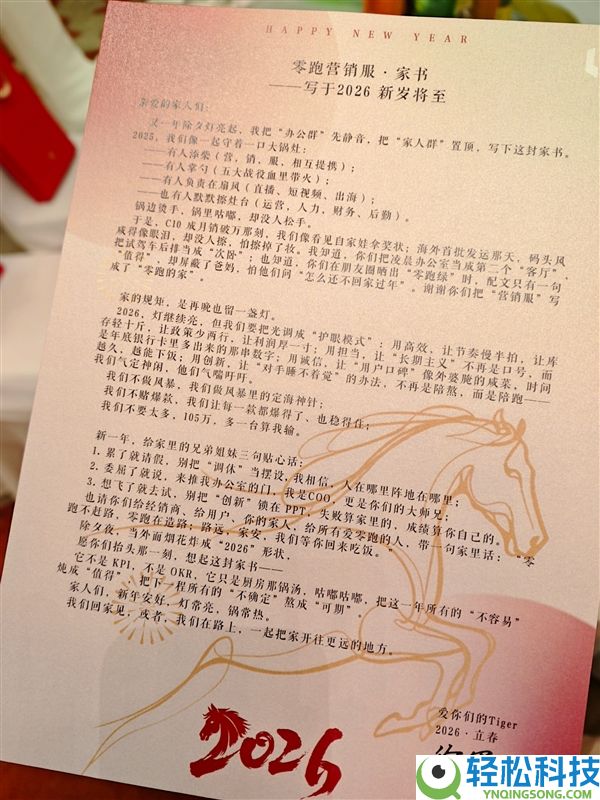 HAPPY NEW YEAR
零跑营销服·家书
——写于2026 新岁将至
亲爱的家人们：
又一年除夕灯亮起，我把“办公群”先静音，把“家人群”置顶，写下这封家书。
2025，我们像一起守着一口大锅灶：
——有人添柴（营，销，服，相互提携）；
——有人掌勺（五大战役血里带火）；
——有人负责在扇风（直播、短视频、出海）；
——也有人默默擦灶台（运营，人力，财务、后勤）。
锅边烫手，锅里咕嘟，却没人松手。
于是，C10 成月销破万那刻，我们像看见自家娃拿奖状；海外首批发运那天，码头风
咸得像眼泪，却没人擦，怕擦掉了妆。我知道，你们把凌晨办公室当成第二个“客厅”，
把试驾车后排当成“次卧”；也知道，你们在朋友圈晒出“零跑绿”时，配文只有一句
“值得”，却屏蔽了爸妈，怕他们问“怎么还不回家过年”。谢谢你们把“营销服”写
成了“零跑的家”。
家的规矩，是再晚也留一盏灯。
2026，灯继续亮，但我们要把光调成“护眼模式”：用高效，让节奏慢半拍，让库
存轻十斤，让政策少两行，让利润厚一寸；用担当，让“长期主义”不再是口号，而
是年底银行卡里多出来的那串数字；用诚信，让“用户口碑”像外婆腌的咸菜，时间
越久，越能下饭；用创新，让“对手睡不着觉”的办法，不再是陪熬，而是陪跑——
我们气定神闲，他们气喘吁吁。
我们不做风暴，我们做风暴里的定海神针；
我们不赌爆款，我们让每一款都爆得了、也稳得住；
我们不要太多，105万，多一台算我输。
新一年，给家里的兄弟姐妹三句贴心话：
1. 累了就请假，别把“调休”当摆设，我相信，人在哪里阵地在哪里；
2. 委屈了就说，来推我办公室的门，我是COO，更是你们的大师兄；
3. 想飞了就去试，别把“创新”锁在 PPT，失败算家里的，成绩算你自己的。
也请你们给经销商、给用户、你的家人，给所有爱零跑的人，带一句家里话：“零
跑不赶路，零跑在造路；路远，家安，我们等你回来吃饭。”
除夕夜，当外面烟花炸成“2026”形状，
愿你们抬头那一刻，想起这封家书——
它不是 KPI，不是 OKR，它只是厨房那锅汤，咕嘟咕嘟，把这一年所有的“不容易”
炖成“值得”，把下一程所有的“不确定”熬成“可期”。
家人们，新年安好，灯常亮，锅常热。
我们回家见；或者，我们在路上，一起把家开往更远的地方。
爱你们的Tiger
2026·立春
2026
轻松科技
YNQINGSONG.COM